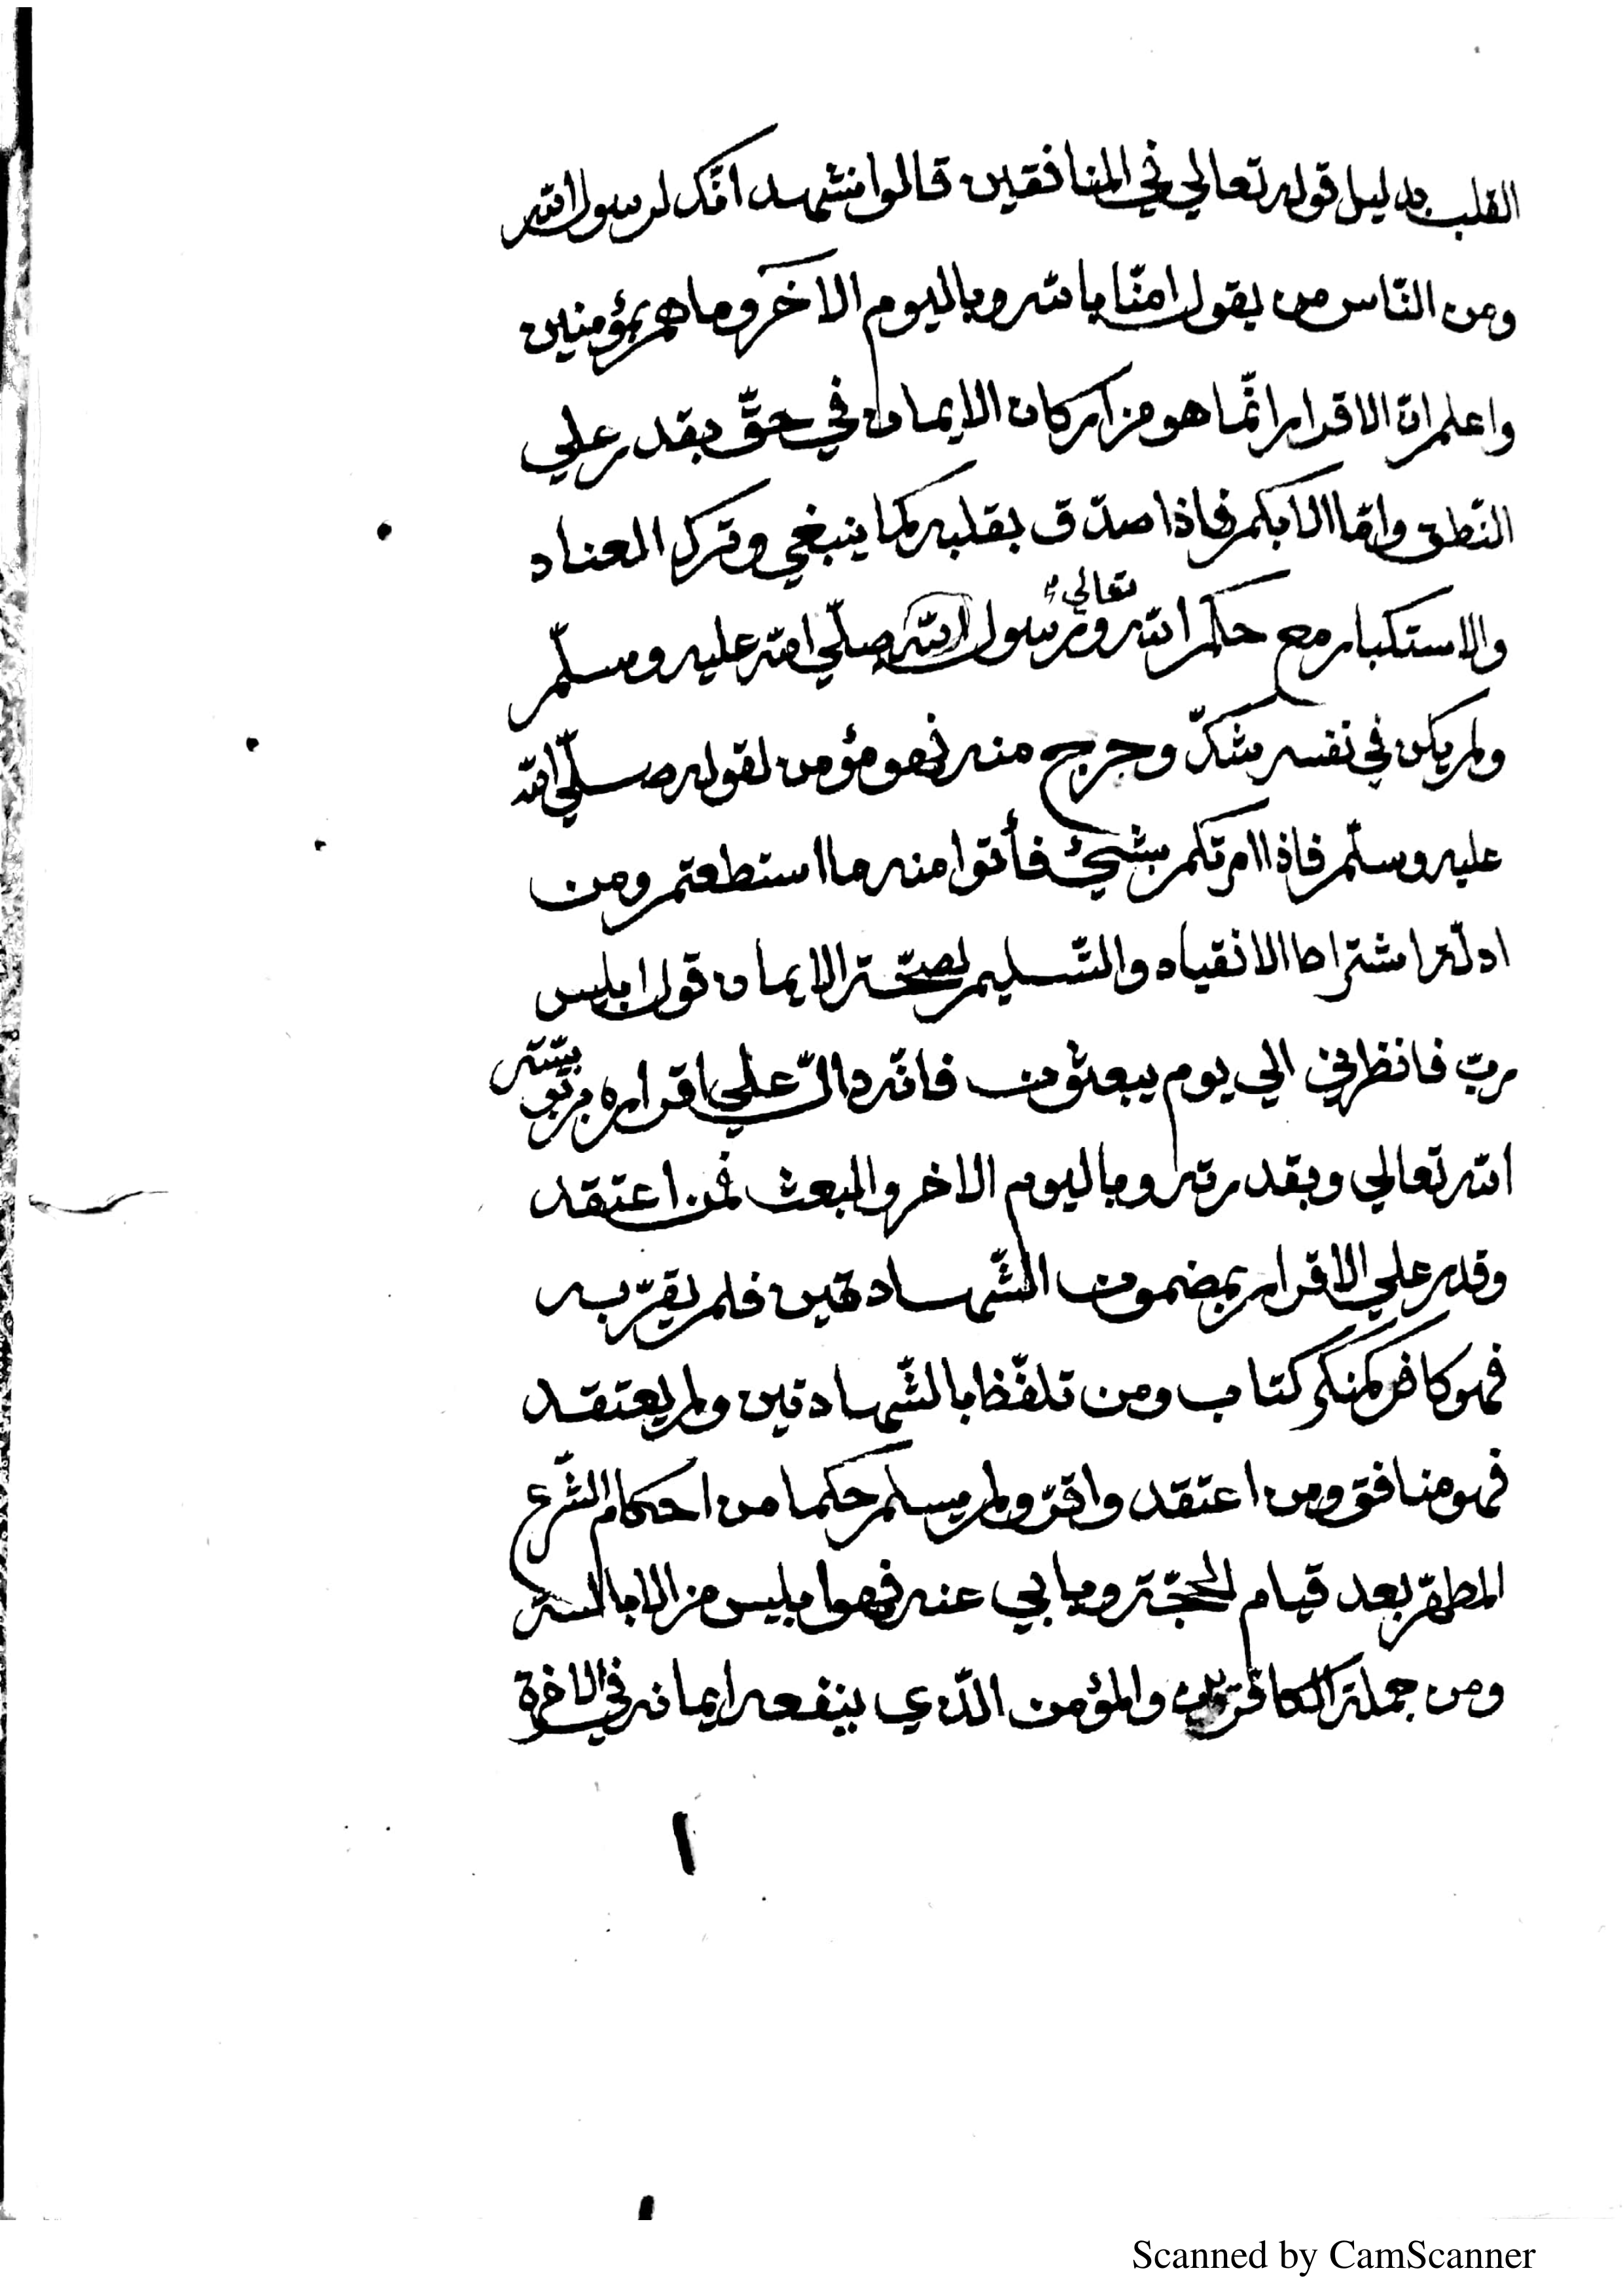 القلب بدليل قوله تعالي في المنافقين قالوا نشهد انّك لرسول الله
ومن النّاس من يقول امنّا بالله وباليوم الاخر وما هم بمؤمنين
واعلم انّ الاقرار انّما هو من اركان الايمان في حقّ يقدر علي
النّطق وامّا الابكم فاذا صدّق بقلبه كما ينبغي وترك العناد
والاستكبار مع حكم الله تعالي ورسول الله صلّي الله عليه وسلّم
ولم يكن في نفسه شكّ وحرج منه فهو مؤمن لقوله صلّي الله
عليه وسلّم فاذا امرتكم بشيئ فأتوا منه ما استطعتم ومن
ادلّة اشتراط الانقياد والتّسليم لصحّة الايمان قول ابليس
ربّ فانظرني الي يوم يبعثون فانّه دالّ علي اقراره بربوبيّته
الله تعالي وبقدرته وباليوم الاخر والبعث فمن اعتقد
وقدر علي الاقرار بمضمون الشّهادتين فلم يقرّ به
فهو كافر كمنكر كتاب ومن تلفّظ بالشّهادتين ولم يعتقد
فهو منافق ومن اعتقد واقرّ ولم يسلم حكما من احكام الشّرع
المطهّر بعد قيام الحجّة ويابي عنه فهو ابليس من الابالسة
ومن جملة الكافرين والمؤمن الّذي ينفعه ايمانه في الاخرة
Scanned by CamScanner